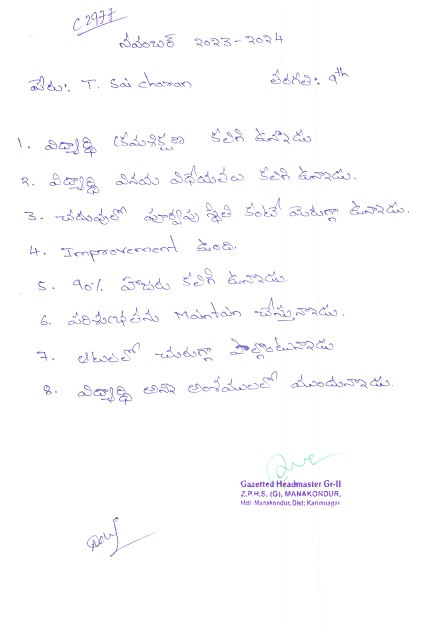 C2977
నవంబర్ 2023-2024
పేరు: T. Sai charan తరగతి: 9th
1. విద్యార్థి క్రమశిక్షణ కలిగి ఉన్నాడు
2. విద్యార్థి వినయ విధేయతలు కలిగి ఉన్నాడు.
3. చదువులో పూర్వపు స్థితి కంటే మెరుగ్గా ఉన్నాడు.
4. Improvement ఉంది.
5. 90% హాజరు కలిగి ఉన్నాడు.
6. పరిశుభ్రతను Maintain చేస్తున్నాడు.
7. ఆటలలో చురుగ్గా పాల్గొంటున్నాడు
8. విద్యార్థి అన్ని అంశములలో ముందున్నాడు.
Gazetted Headmaster Gr-II
Z.P.H.S. (G), MANAKONDUR,
Mdl: Manakondur, Dist: Karimnagar